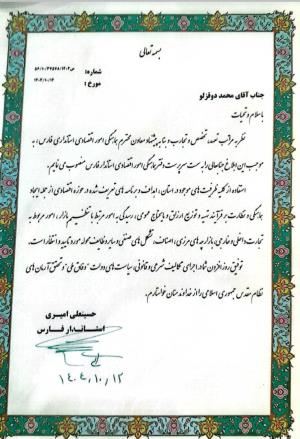 بسمه تعالی
شماره: ص/۱۴۰۴/۵۶/۱۰/۳۴۵۷۸
مورخ: ۱۴۰۴/۱۰/۱۴
جناب آقای محمد دوقزلو
با سلام و تحیات
نظر به مراتب تعهد، تخصص و تجارب و بنا به پیشنهاد معاون محترم هماهنگی امور اقتصادی استانداری فارس، به
موجب این ابلاغ جنابعالی را به سمت سرپرست دفتر هماهنگی امور اقتصادی استاندار فارس منصوب می‌نمایم.
استفاده از کلیه ظرفیت‌های موجود در استان، اهداف و برنامه های تعریف شده در حوزه اقتصادی از جمله ایجاد
هماهنگی و نظارت بر فرآیند تهیه و توزیع ارزاق و مایحتاج عمومی، رسیدگی به امور مرتبط با تنظیم بازار، امور مربوط به
تجارت داخلی و خارجی، بازارچه های مرزی، اصناف، تشکل های صنفی و سایر وظایف محوله مورد تاکید و انتظار است.
توفیق روزافزون شما در اجرای تکالیف شرعی و قانونی، سیاست های دولت "وفاق ملی" و تحقق آرمان های
نظام مقدس جمهوری اسلامی را از خداوند منان خواستارم.
حسینعلی امیری
استاندار فارس
۱۴۰۴,۱۰,۱۲